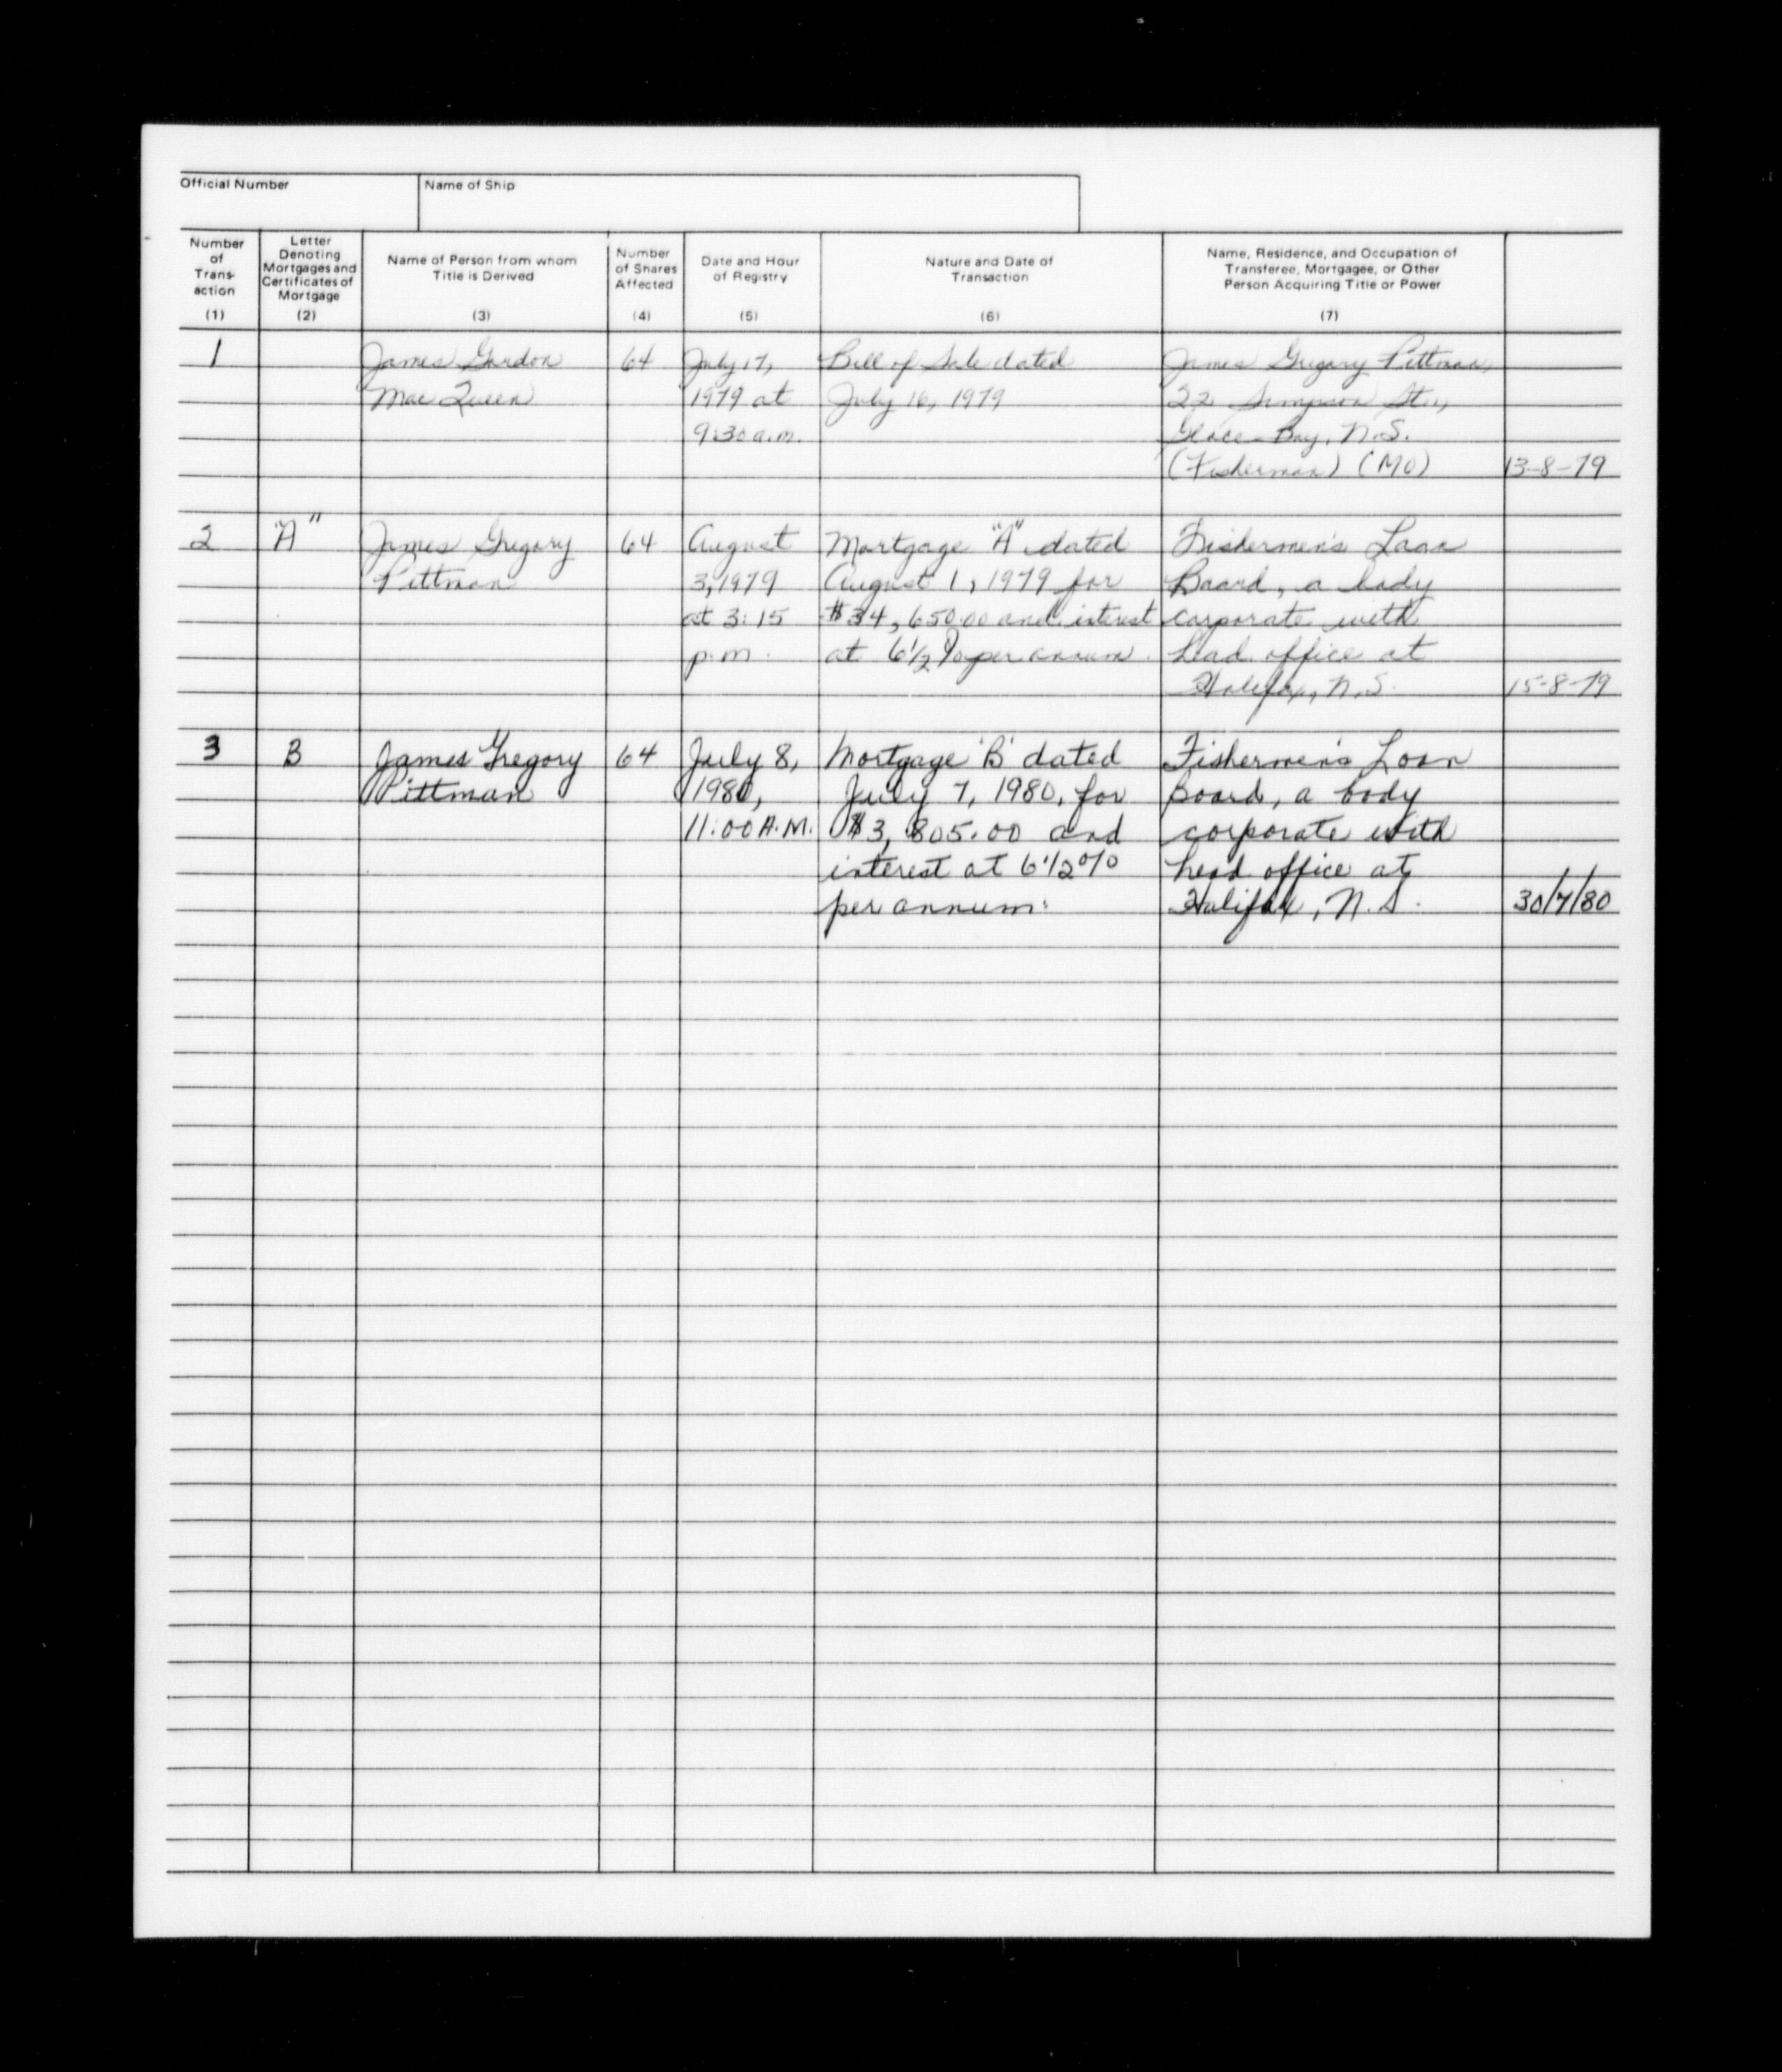 Official Number
Name of Ship
Number of Trans- action (1)
Letter Denoting Mortgages and Certificates of Mortgage (2)
Name of Person from whom Title is Derived (3)
Number of Shares Affected (4)
Date and Hour of Registry (5)
Nature and Date of Transaction (6)
Name, Residence, and Occupation of Transferee, Mortgagee, or Other Person Acquiring Title or Power (7)
1 James Gordon 64 July 17, Bill of Sale dated James Gregory Pittman,
Mac Queen 1979 at July 16, 1979 22 Simpson St.,
9:30 a.m. Glace Bay, N.S.
(Fisherman) (MO) 13-8-79
2 "A" James Gregory 64 August Mortgage "A" dated Fishermen's Loan
Pittman 3, 1979 August 1, 1979 for Board, a body
at 3:15 $34,650.00 and interest corporate with
p.m. at 6 1/2 % per annum. head office at
Halifax, N.S. 15-8-79
3 B James Gregory 64 July 8, Mortgage 'B' dated Fishermen's Loan
Pittman 1980, July 7, 1980, for Board, a body
11:00 A.M. $3,805.00 and corporate with
interest at 6 1/2 % head office at
per annum. Halifax, N.S. 30/7/80